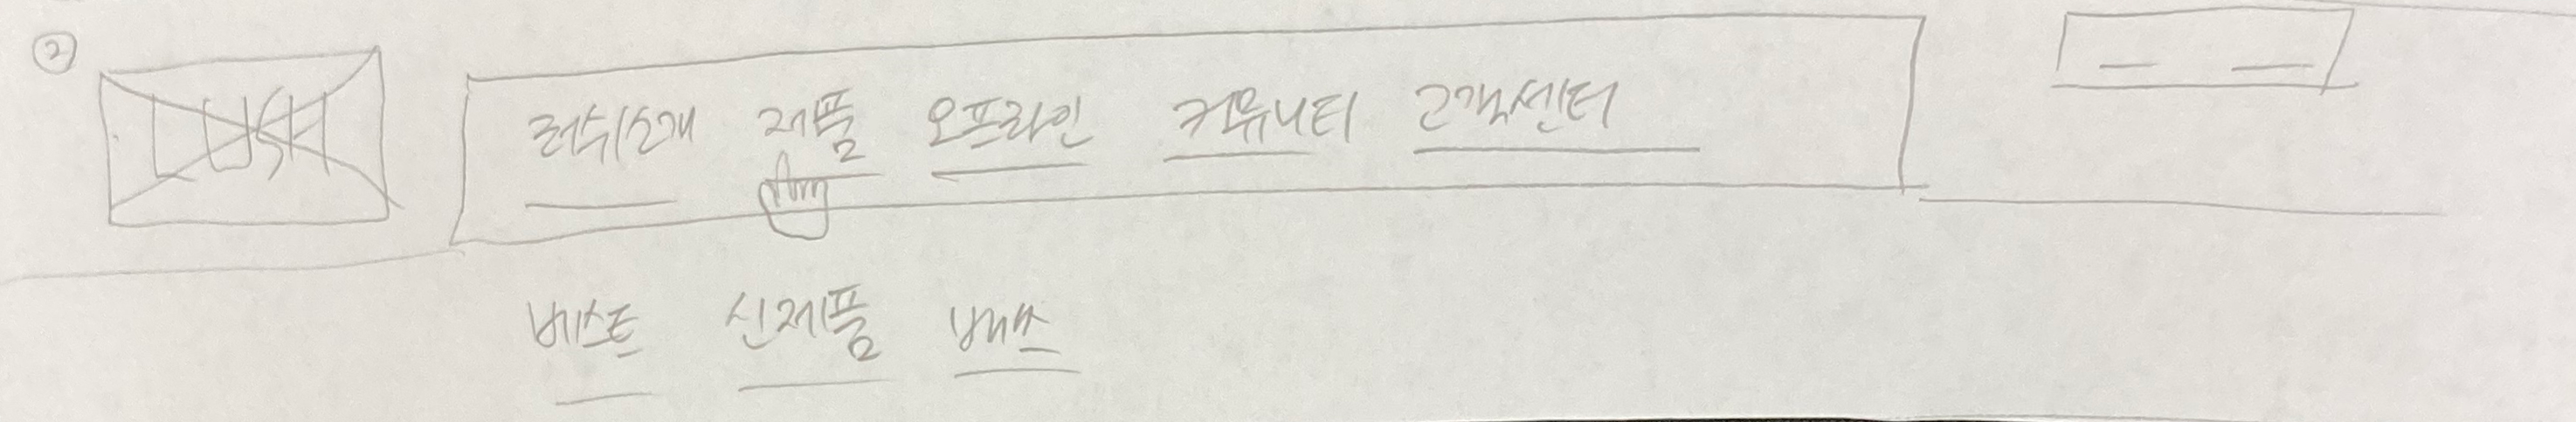 ②
LUSH
러쉬소개 제품 오프라인 커뮤니티 고객센터
베스트 신제품 배쓰